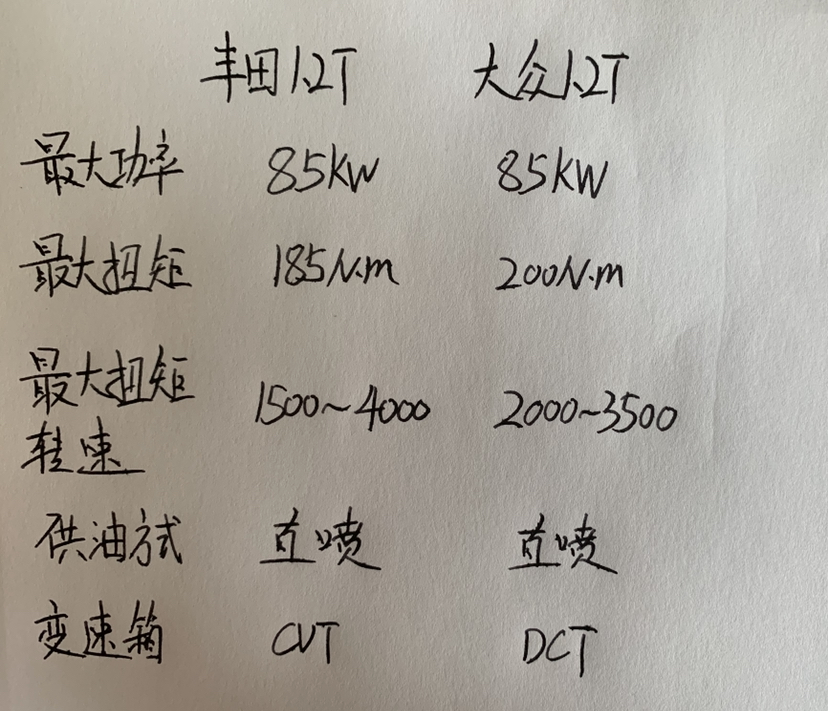 丰田1.2T 大众1.2T
最大功率 85kW 85kW
最大扭矩 185N·m 200N·m
最大扭矩
转速 1500~4000 2000~3500
供油方式 直喷 直喷
变速箱 CVT DCT